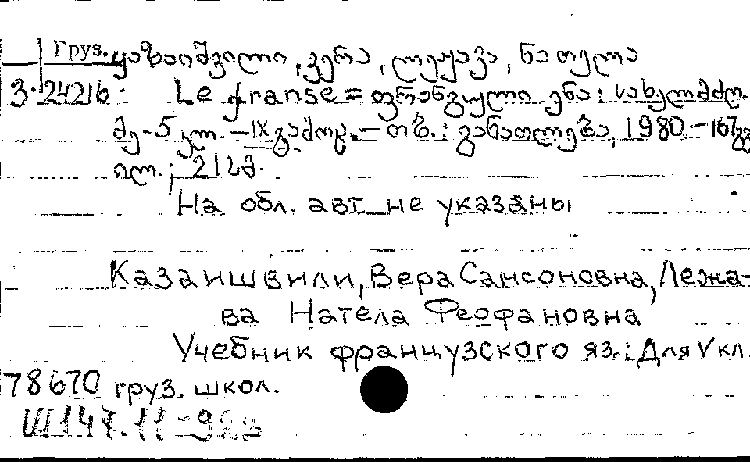 Груз. ყაზაიშვილი, ვერა, ლეჟავა, ნათელა
3-24216 Le franse = ფრანგული ენა: სახელმძღ.
მე-5 კლ. – IX გამოც. – თბ.: განათლება, 1980 – 167გვ
ილ.; 21სმ.
На обл. авт. не указаны
Казаишвили, Вера Самсоновна, Лежа-
ва Натела Феофановна
Учебник французского яз.: Для V кл.
78670 груз. школ.
Ш147.11-922